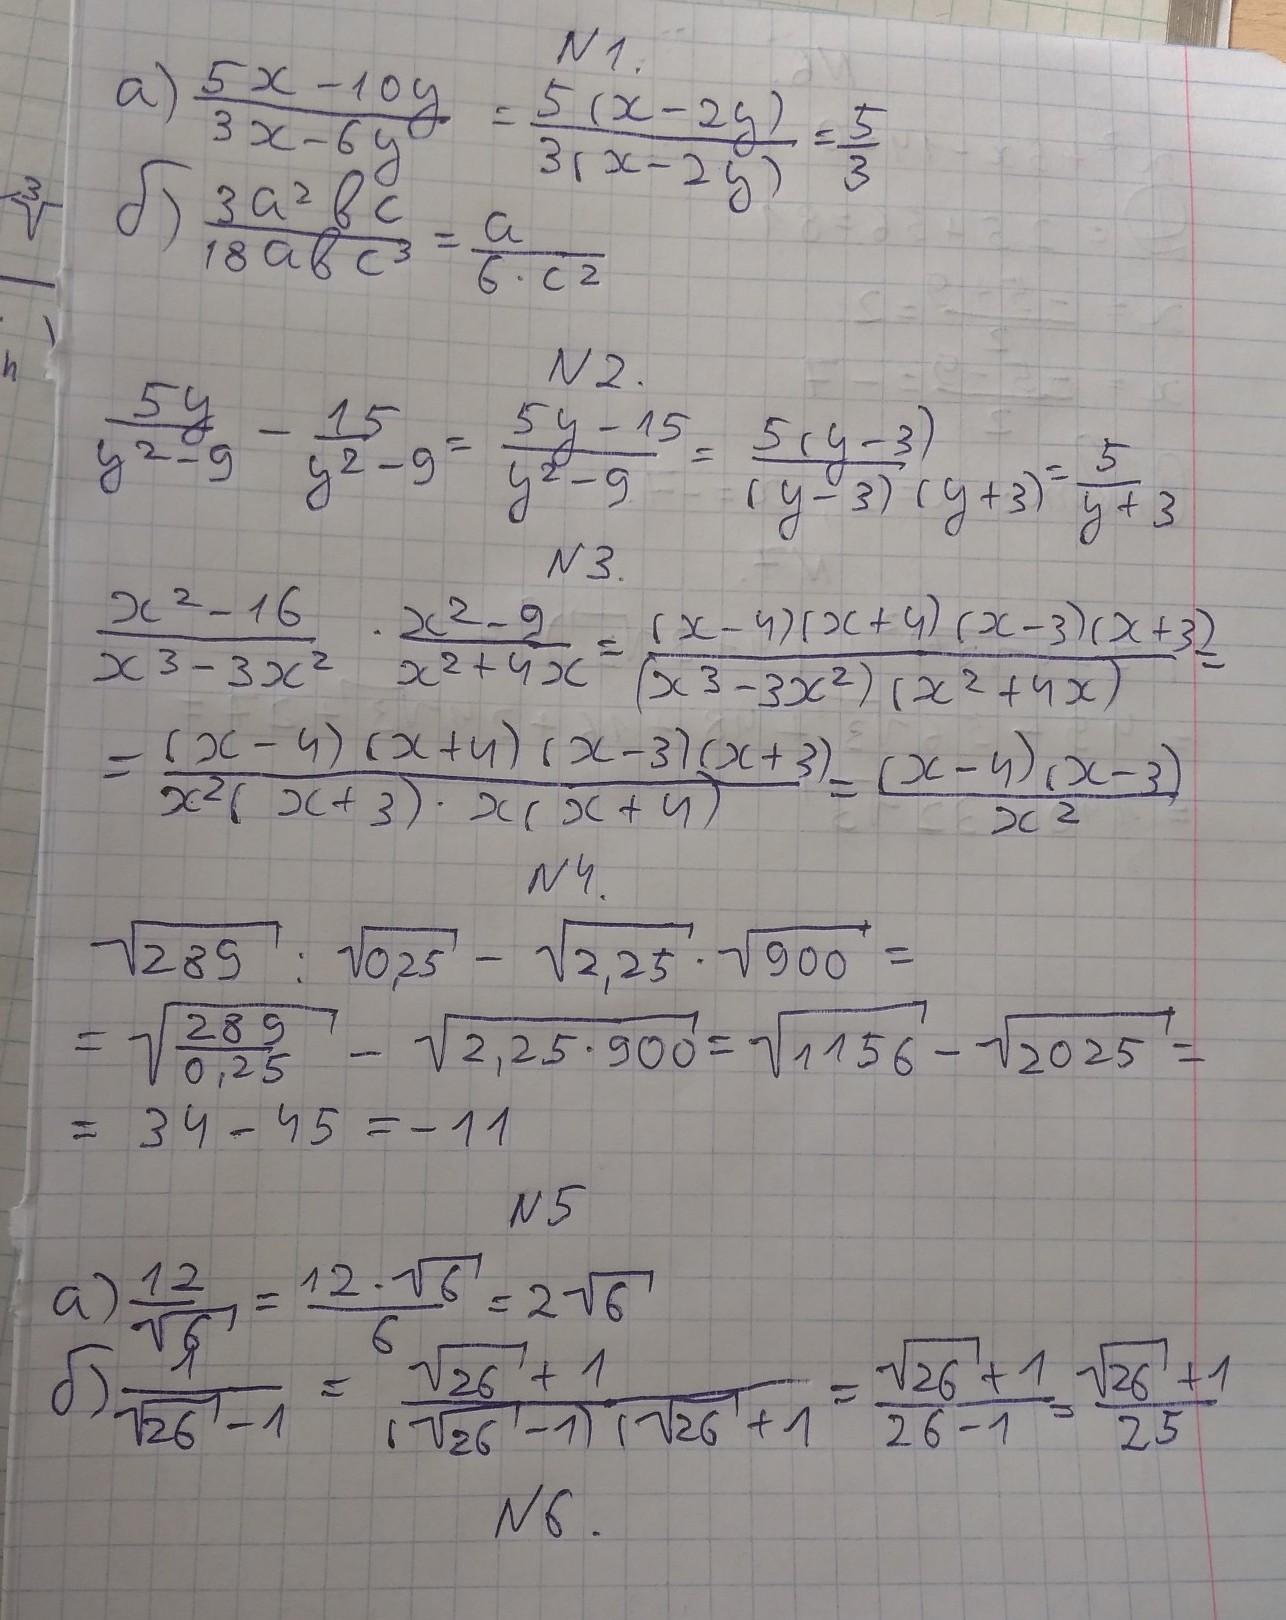 N1.
а) (5x-10y)/(3x-6y) = (5(x-2y))/(3(x-2y)) = 5/3
б) (3a²bc)/(18abc³) = a/(6·c²)
N2.
5y/(y²-9) - 15/(y²-9) = (5y-15)/(y²-9) = (5(y-3))/((y-3)(y+3)) = 5/(y+3)
N3.
(x²-16)/(x³-3x²) · (x²-9)/(x²+4x) = ((x-4)(x+4)(x-3)(x+3))/((x³-3x²)(x²+4x)) =
= ((x-4)(x+4)(x-3)(x+3))/(x²(x+3)·x(x+4)) = ((x-4)(x-3))/x²
N4.
√289 : √0,25 - √2,25 · √900 =
= √(289/0,25) - √(2,25·900) = √1156 - √2025 =
= 34 - 45 = -11
N5
а) 12/√6 = (12·√6)/6 = 2√6
б) 1/(√26-1) = (√26+1)/((√26-1)(√26+1) = (√26+1)/(26-1) = (√26+1)/25
N6.